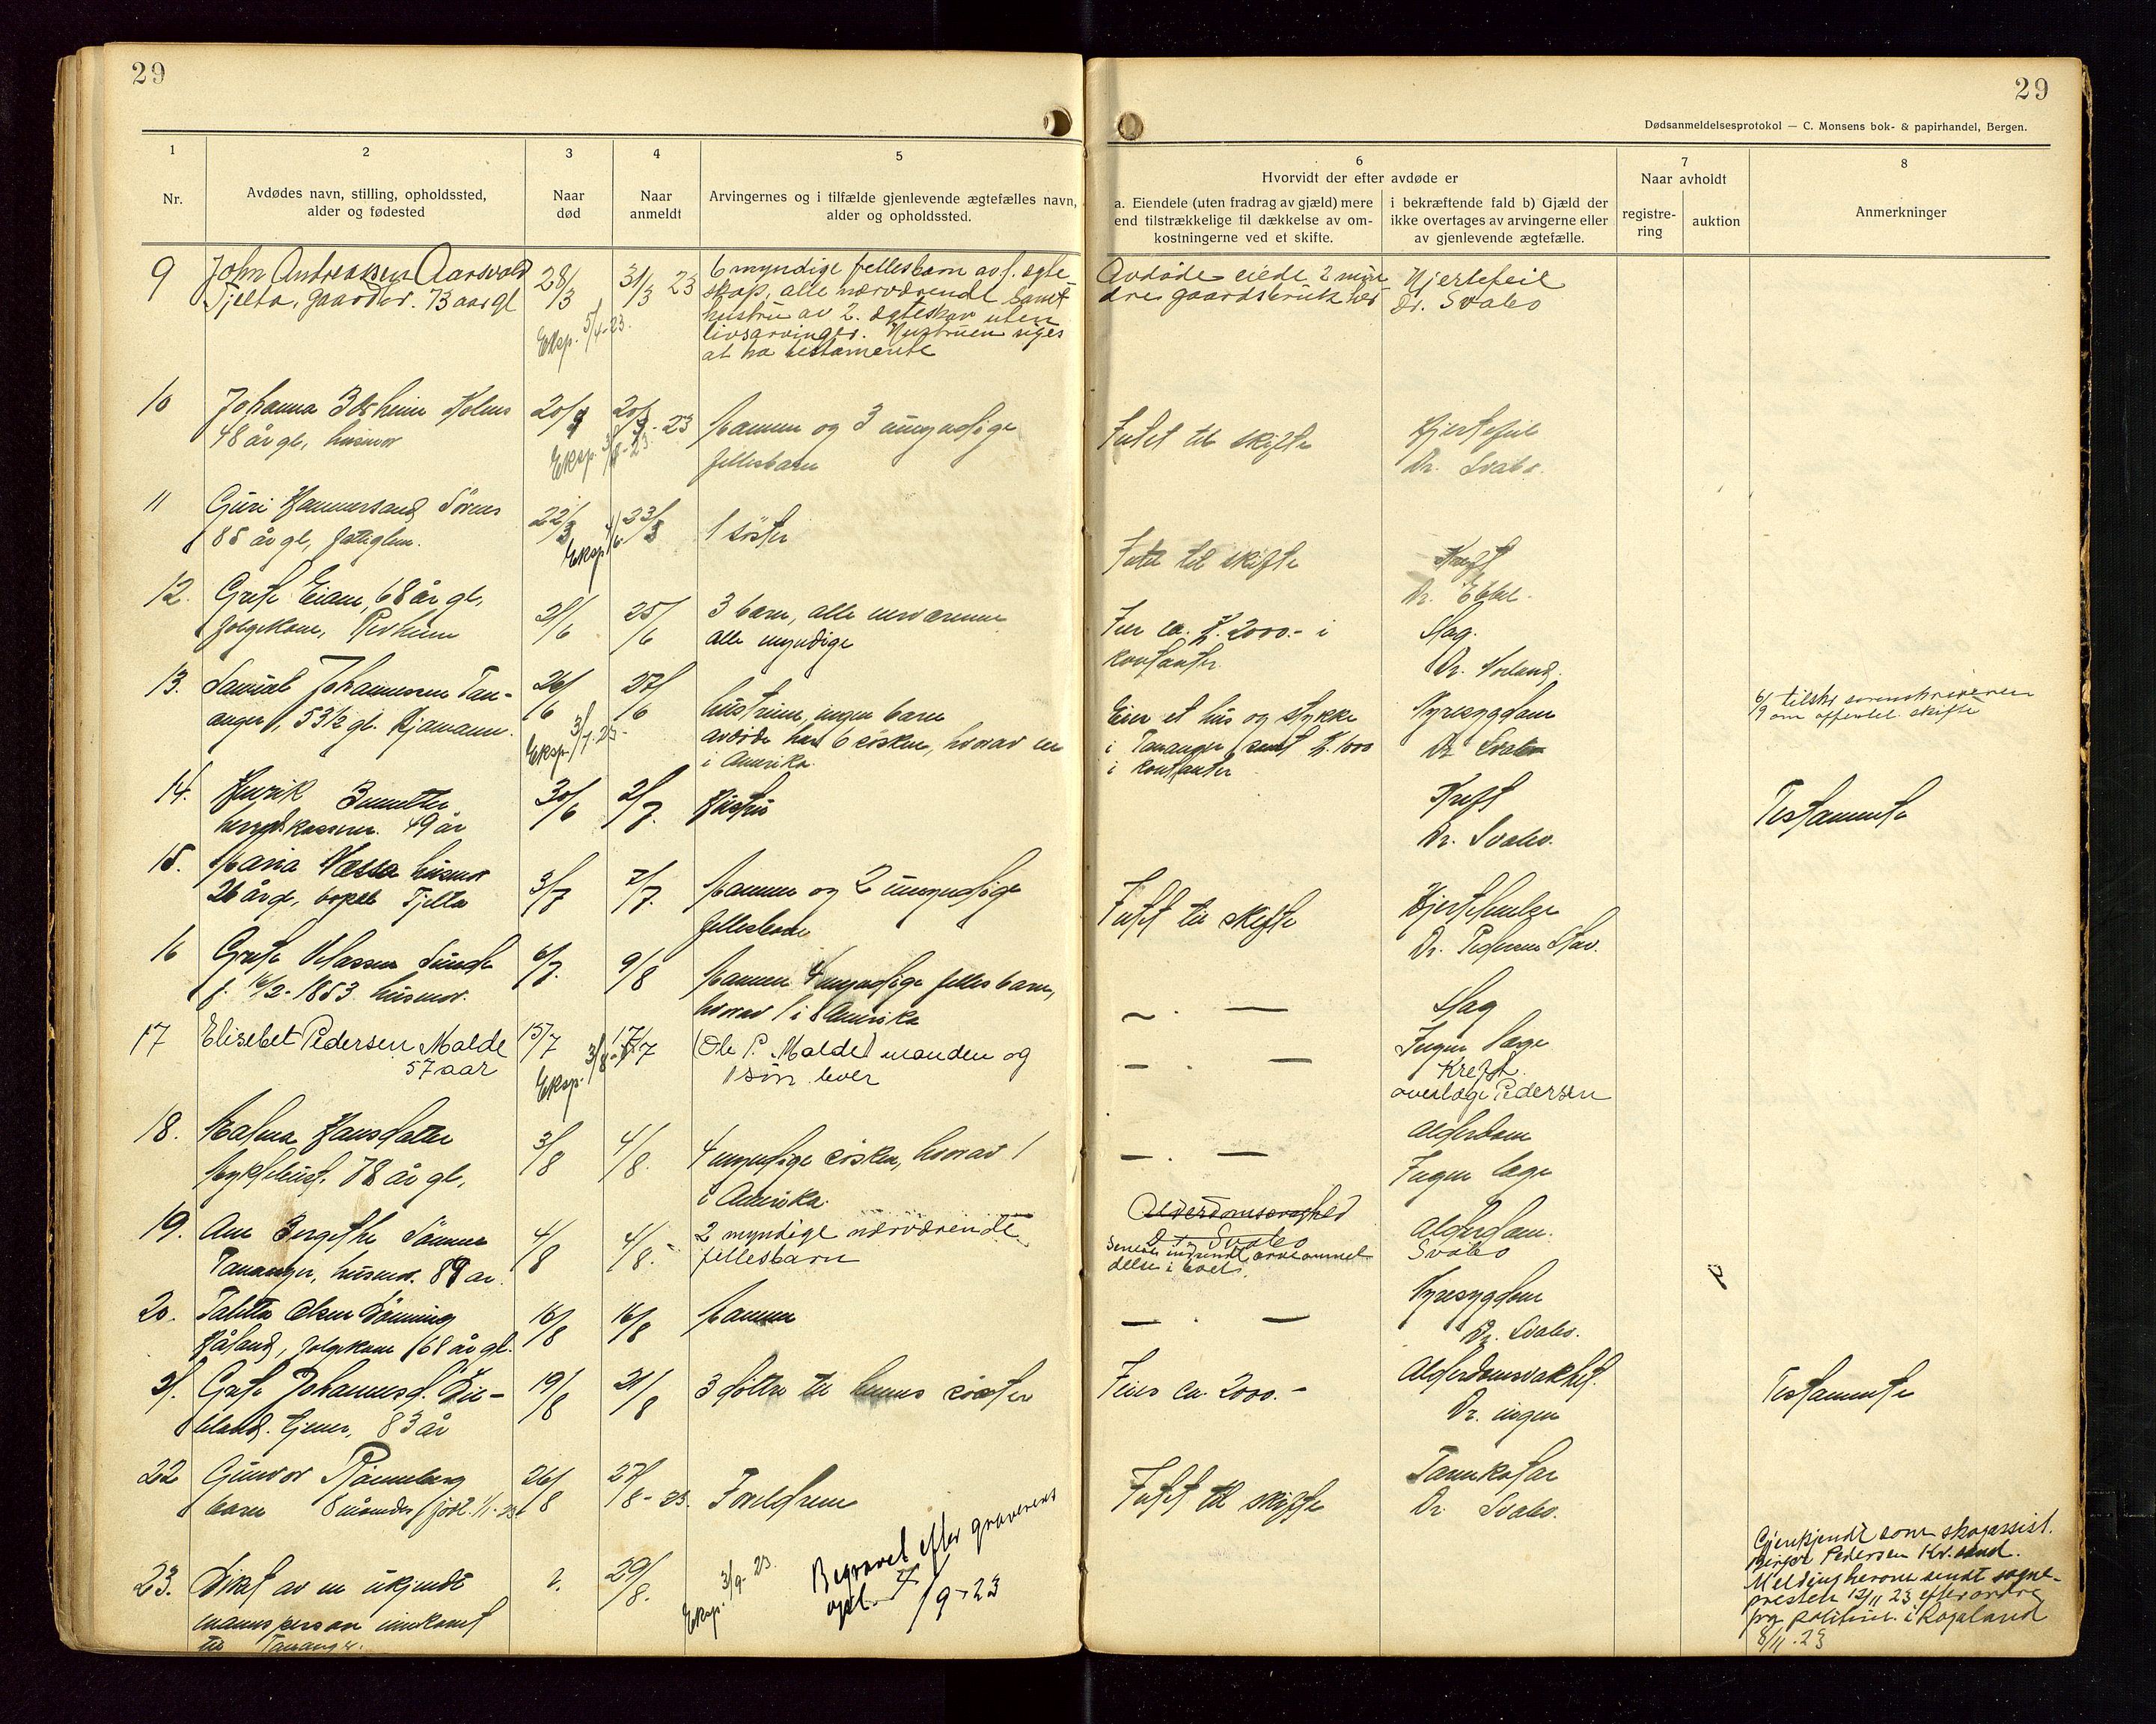 29
29
Dødsanmeldelsesprotokol — C. Monsens bok- & papirhandel, Bergen.
1
Nr.
2
Avdødes navn, stilling, opholdssted,
alder og fødested
3
Naar
død
4
Naar
anmeldt
5
Arvingernes og i tilfælde gjenlevende ægtefælles navn,
alder og opholdssted.
6
Hvorvidt der efter avdøde er
a. Eiendele (uten fradrag av gjæld) mere
end tilstrækkelige til dækkelse av om-
kostningerne ved et skifte.
i bekræftende fald b) Gjæld der
ikke overtages av arvingerne eller
av gjenlevende ægtefælle.
7
Naar avholdt
registre-
ring
auktion
8
Anmerkninger
9
John Andreassen Aarsvold
Tjelta, gaardbr. 73 aar gl
28/3
31/3 23
Eksp. 5/4-23.
6 myndige fellesbarn av f. egte
skap, alle nærværende samt
hustru av 2. egteskap uten
livsarvinger. Hustruen siges
at ha testamente
Avdøde eiede 2 min
dre gaardsbruk her
Hjertefeil
Dr. Svabo
10
Johanna
48 år gl, husmor
20/3
20/3-23
Mannen og 3 umyndige
fellesbarn
Intet til skifte
Hjertefeil
Dr. Svabo.
11
Guri Hammersand Sörnes
85 år gl,
22/3
23/3
Eksp.
1 söster
Intet til skifte
Kreft
Dr. Ebbel.
12.
Grete Eiane, 68 år gl,
25/6
3 barn, alle
alle myndige
Eier ca. K. 2000.- i
kontanter
Slag.
Dr.
13.
Samuel Johannesen Tan-
anger, 53½ gl. Sjömann.
26/6
27/6
Eksp. 3/7-23-
hustruen, ingen barn
avdøde har 6 søsken, hvorav en
i Amerika.
Eier et hus og stykke
i Tananger samt K. 1000
i kontanter
Nyresygdom
Dr Svabo
6/9 tilskr. sorenskriveren
om offentl. skifte
14.
Henrik
49 år
30/6
2/7.
Hustru
Kreft
Dr. Svabo.
Testamente
15.
Maria Næssa husmor
26 år gl, bopæl Tjelta
3/7
7/7.
Mannen og 2 umyndige
fellesbarn
Intet til skifte
Dr. Pedersen Stav.
16
Grete Sunde
f. 16/2-1853. husmor.
6/7.
9/8
Mannen 4 myndige fellesbarn,
hvorav 1 i Amerika
— . —
Slag
Ingen læge
17
Elisebet Pedersen Malde
57 aar
15/7
17/7
Eksp. 3/8-
(Ole P. Malde) manden og
1 sön lever
— . —
Kreft.
overlæge Pedersen
18.
Malena Hansdatter
Myklebust. 78 år gl,
3/8
4/8.
4 myndige søsken, hvorav 1
i Amerika.
— . —
Alderdom
Ingen læge
19.
Ane Bergethe Sömme
Tananger, husmor. 89 ar.
4/8
4/8.
2 myndige nærværende
fellesbarn
Alderdomssvaghed
Dr Svabo
Senere indsendt arveanmel
delse i boet.
Alderdom.
Svabo
20.
Talitta Olsen Dönning
Håland, 68 år gl.
16/8
16/8
Mannen
— . —
Nyresygdom
Dr. Svabo.
21.
Grete Johannesd.
83 år
19/8
21/8
3 døtre til hennes søster
Eier ca. 2000.-
Alderdomsvakhet.
Dr. ingen
Testamente
22
Gunvor
barn 8 måneder
26/8
27/8-23.
Foreldrene
Intet til skifte
Dr. Svabo.
23.
av en ukjendt
mannsperson
til Tananger.
?.
29/8.
Eksp. 3/9-23.
Begravet efter graverens
opl. 7/9-23
Gjenkjendt som skogassist.
Birger Pedersen Kv.sand.
Melding herom sendt sogne-
presten 12/11 23 efter ordre
fra politim. i Rogaland
8/11-23